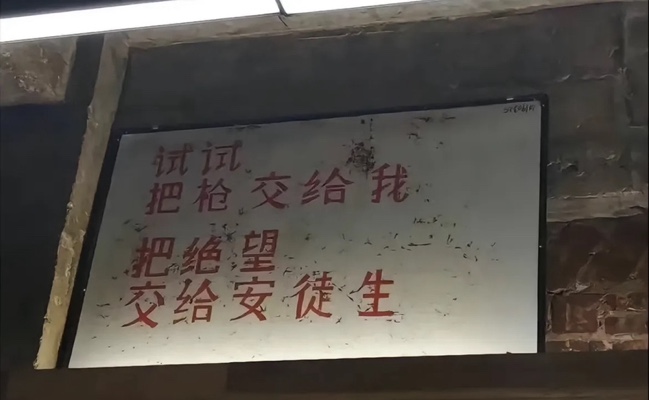 试试
把枪交给我
把绝望
交给安徒生